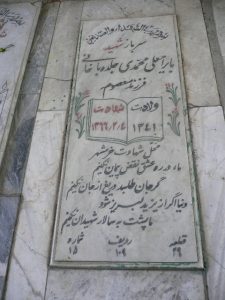 سرباز شهید
فرزند معصوم
ولادت
۱۳۴۱
شهادت
۱۳۶۶/۲/۴
محل شهادت خرمشهر
ما در ره عشق نقض پیمان نکنیم
گر جان طلبد دریغ از جان نکنیم
دنیا اگر از یزید لبریز شود
ما پشت به سالار شهیدان نکنیم
قطعه ردیف شماره
۲۹ ۱۰۹ ۱۵